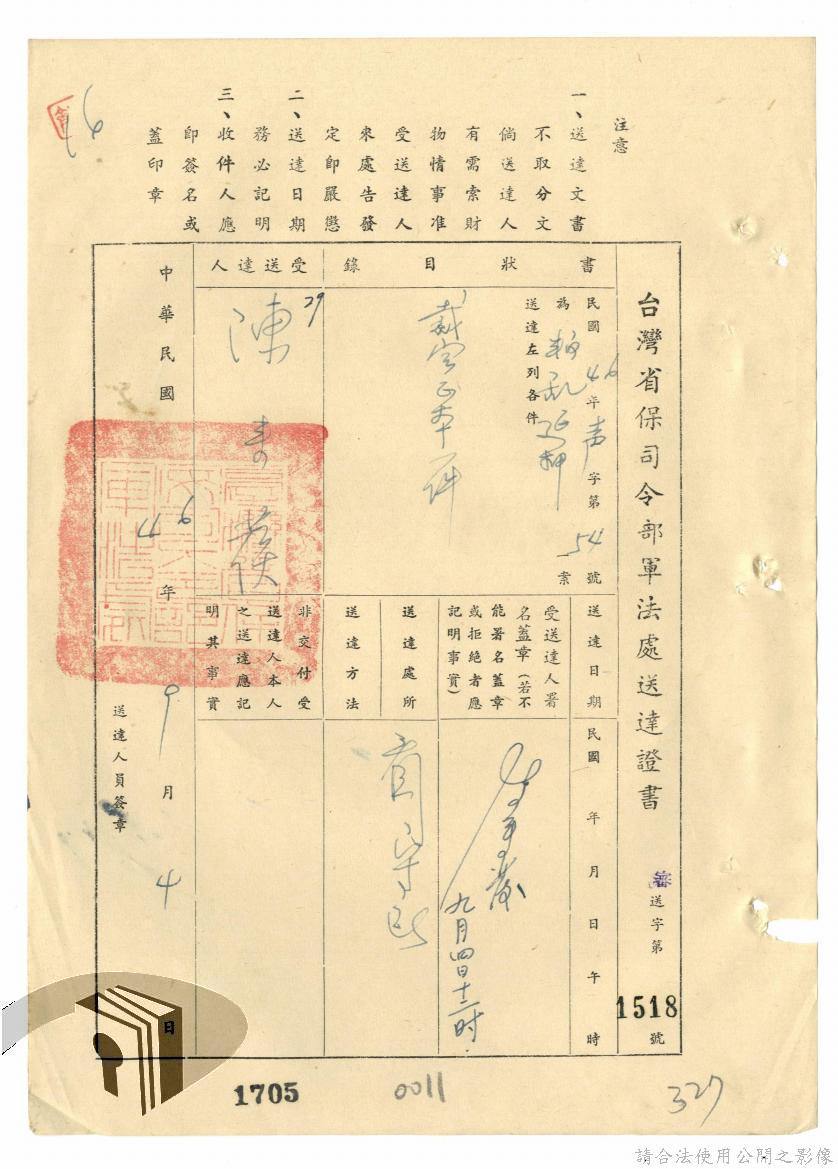 注意
一、送達文書
不取分文
倘送達人
有需索財
物情事准
受送達人
來處告發
定即嚴懲
二、送達日期
務必記明
三、收件人應
即簽名或
蓋印章
台灣省保司令部軍法處送達證書
送字第
1518
號
書狀目錄
民國46年声字第54號
為叛乱延押案
送達左列各件
裁定正本一件
受送達人
29
陳
送達日期
民國 年 月 日 午 時
受送達人署
名蓋章(若不
能署名蓋章
或拒絕者應
記明事實)
九月四日十二时
送達處所
送達方法
非交付受
送達人本人
之送達應記
明其事實
中華民國46年9月4日
送達人員簽章
1705
0011
327
請合法使用公開之影像